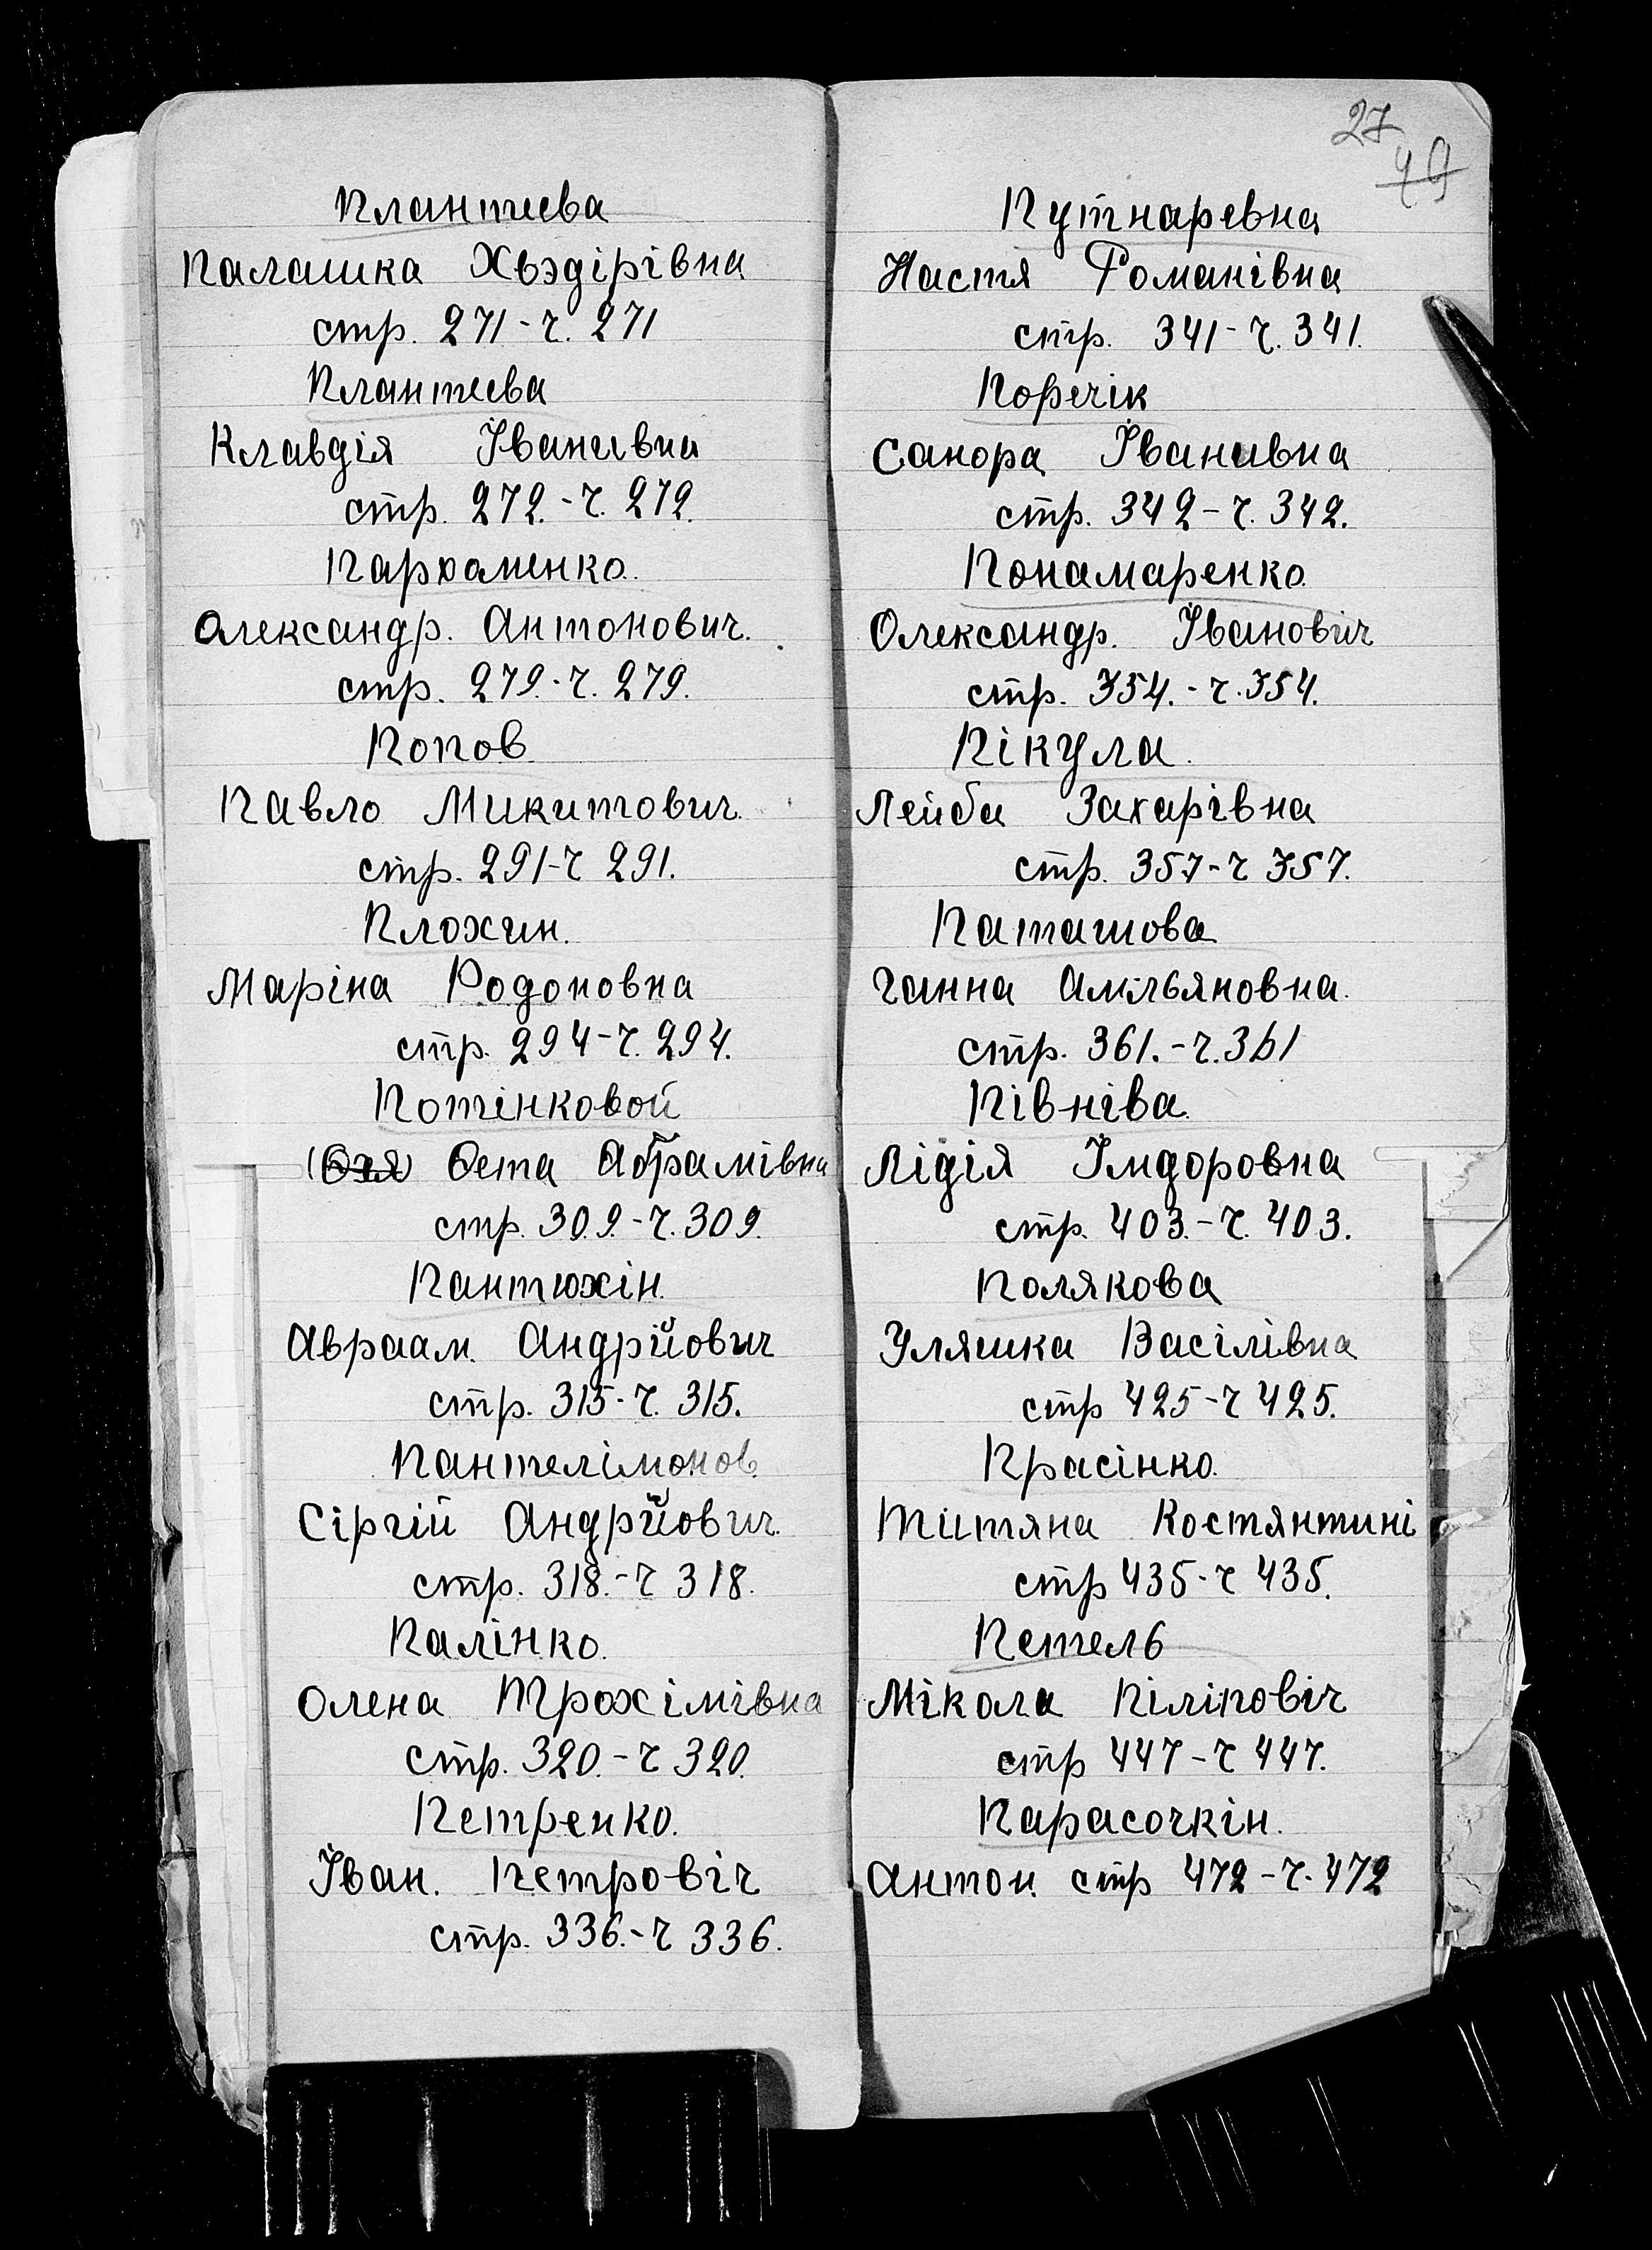 Плантеева
Палашка Хьэдірівна
стр. 271-ч. 271
Плантеева
Клавдія Іванивна
стр. 272.-ч. 272.
Пархоменко.
Олександр. Антонович.
стр. 279.-ч. 279.
Попов.
Павло Микитович.
стр. 291-ч 291.
Плохин.
Маріна Родоновна
стр. 294-ч. 294.
Потінковой
Оета Абрамівна
стр. 309.-ч. 309.
Пантюхін.
Авраам. Андрійович
стр. 315-ч. 315.
Пантелімонов.
Сіргій Андрійович.
стр. 318.-ч 318.
Палінко.
Олена Трохімівна
стр. 320.-ч 320.
Петренко.
Іван. Петровіч
стр. 336.-ч 336.
27
49
Путнаревна
Настя Романівна
стр. 341-ч. 341.
Поречік
Санора Іванивна
стр. 342-ч. 342.
Понамаренко.
Олександр. Івановіч
стр. 354.-ч. 354.
Пікула.
Лейба Захарівна
стр. 357-ч 357.
Паташова
Ганна Амільяновна.
стр. 361.-ч. 361
Півніва.
Лідія Імдоровна
стр. 403.-ч. 403.
Полякова
Уляшка Васілівна
стр 425-ч 425.
Прасінко.
Титяна Костянтині
стр 435-ч 435.
Петель
Мікола Піліповіч
стр 447-ч 447.
Парасочкін.
Антон. стр 472-ч. 472